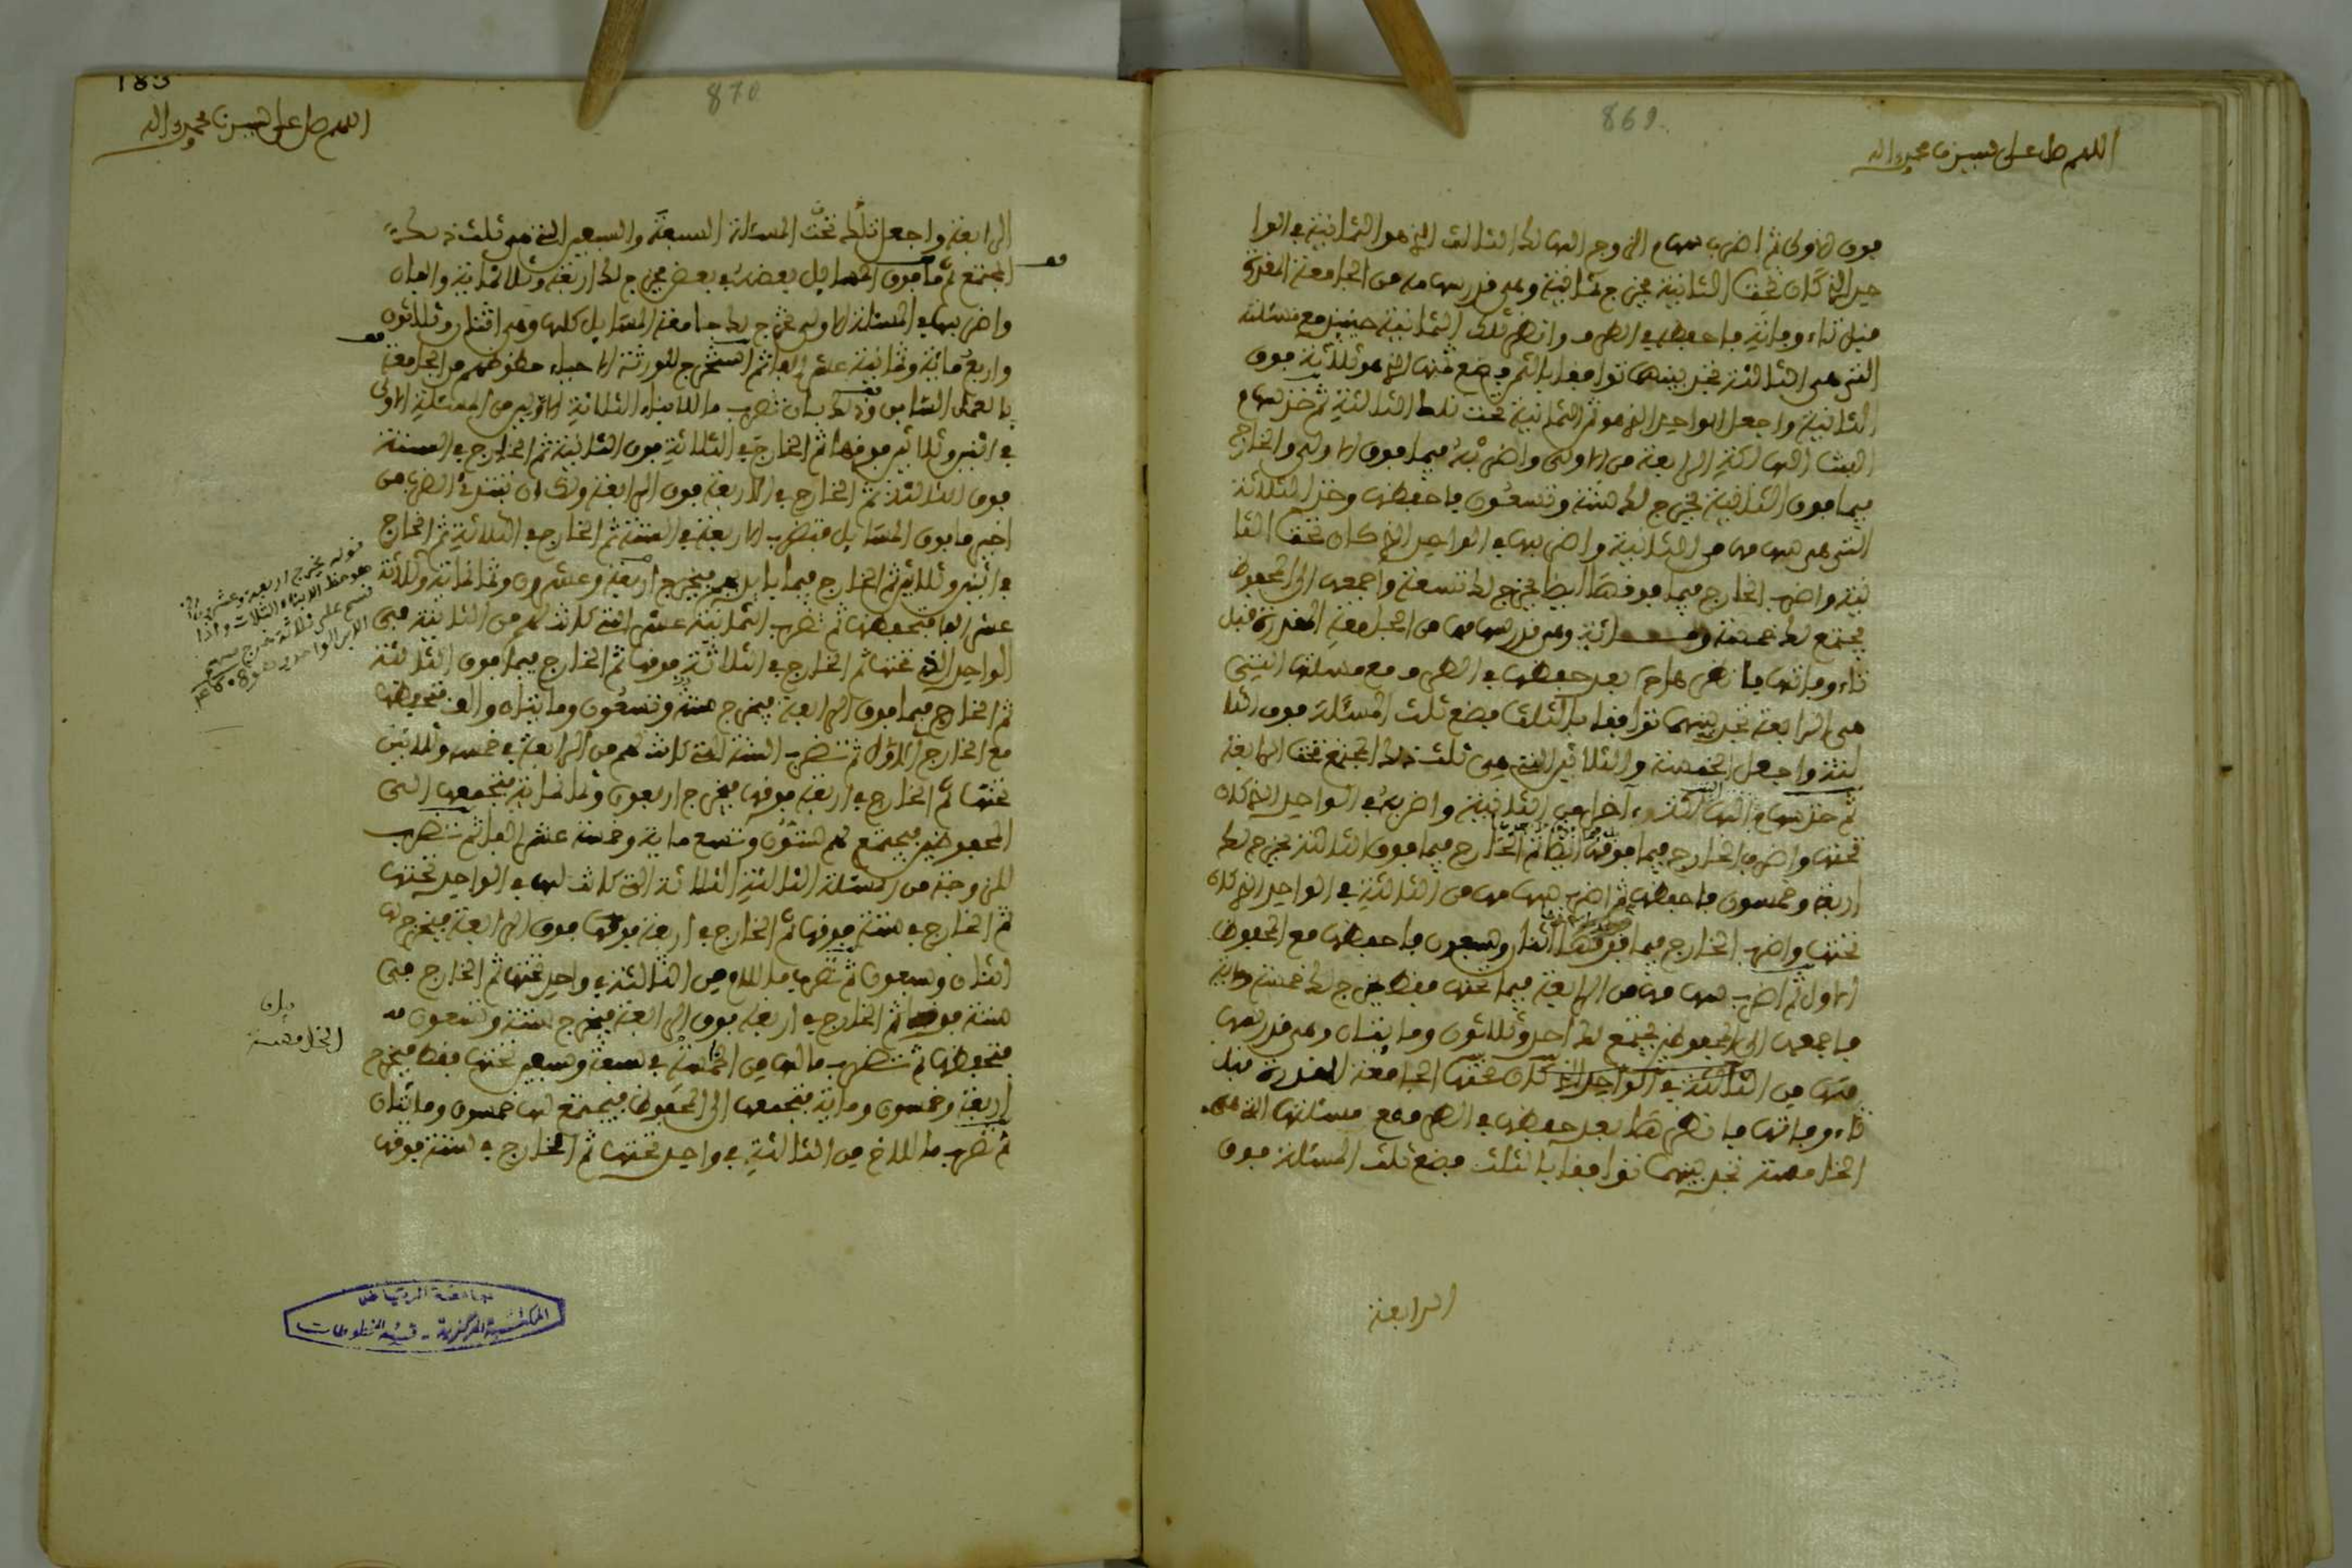 869
اللهم صل على نبينا محمد وآله
فوق الأولى ثم اضرب سهام الزوجة التي لها الثالث الذي هو الثمانية في الوا
حد الذي كان تحت الثانية يخرج ثمانية وهي قدر سهامه من الجامعة المقدرة
قبل ثاء وفاته فاحفظه في الطرف وانظر تلك الثمانية حينئذ مع مسئلة
التي هي الثالثة تجد بينهما توافقا بالثمن فضع ثمنها الذي هو ثلاثة فوق
الثانية واجعل الواحد الذي هو ثمن الثمانية تحت تلك الثالثة ثم خذ سهام
البنت الهالكة الرابعة من الأولى واضربه فيما فوق الأولى والخارج
فيما فوق الثانية يخرج لك ستة وتسعون فاحفظها وخذ الثلاثة
التي هي سهامها من الثانية واضربها في الواحد الذي كان تحت الثا
نية واضرب الخارج فيما فوقها أيضا يخرج لك تسعة واجمعها إلى المحفوظ
يجتمع لك خمسة ومائة وهي قدر سهامها من الجامعة المقدرة قبل
ثاء وفاتها فانظر بعد حفظها في الطرف مع مسئلتها التي
هي الرابعة تجد بينهما توافقا بالثلث فضع ثلث المسئلة فوق الثا
لثة واجعل الخمسة والثلاثين التي هي ثلث ذلك المجتمع تحت الرابعة
ثم خذ سهام من الثانية واضربه في الواحد الذي كان
تحتها واضرب الخارج فيما فوقها أيضا ثم الخارج فيما فوق الثالثة يخرج لك
أربعة وخمسون فاحفظها ثم اضرب سهامها من الثالثة في الواحد الذي كان
تحتها واضرب الخارج فيما فوقها اثنان وسبعون فاحفظها مع المحفوظ
الأول ثم اضرب سهامها من الرابعة فيما تحتها فقط يخرج لك خمسة ومائة
فاجمعها إلى المحفوظين يجتمع لك أحد وثلاثون ومايتان وهي قدر سهامها
منها من الثالثة في الواحد الذي كان تحتها الجامعة المقدرة قبل
ثاء وفاتها فانظر هما بعد حفظها في الطرف مع مسئلتها التي هي
الخامسة تجد بينهما توافقا بالثلث فضع ثلث المسئلة فوق
الرابعة
183
870
اللهم صل على نبينا محمد وآله
الرابعة واجعل تحت المسئلة السبعة والسبعين التي هي ثلث ذلك
المجتمع ثم ما فوق المسايل بعضه في بعض يخرج لك أربعة وثلاثمائة وألفان
واضربها في المسئلة الأولى يخرج لك جامعة المسايل كلها وهي اثنان وثلاثون
وأربع مائة وثمانية عشر ألفا ثم استخرج للورثة الأحياء حظوظهم من الجامعة
بالعمل السابق وذلك بأن تضرب ما للأبناء الثلاثة الأولين من المسئلة الأولى
في اثنين وثلاثين فوقها ثم الخارج في الثلاثة فوق الثانية ثم الخارج في الستة
فوق الثالثة ثم الخارج في الأربعة فوق الرابعة ولك أن تبتدئ الضرب من
أخير ما فوق المسايل فتضرب الأربعة في الستة ثم الخارج في الثلاثة ثم الخارج
في اثنين وثلاثين ثم الخارج فيما بأيديهم فيخرج أربعة وعشرون وثمانمائة وثلاثة
عشر ألفا فتحفظها ثم تضرب الثمانية عشر التي كانت لهم من الثانية في
الواحد الذي تحتها ثم الخارج في الثلاثة فوقها ثم الخارج فيما فوق الثالثة
ثم الخارج فيما فوق الرابعة فيخرج ستة وتسعون ومايتان وألف فتحفظها
مع الخارج الأول ثم تضرب الستة التي كانت لهم من الرابعة في خمسة وثلاثين
تحتها ثم الخارج في أربعة فوقها فيخرج أربعون وثمانمائة فتجمعها إلى
المحفوظين فيجتمع لهم ستون وتسع مائة وخمسة عشر ألفا ثم تضرب
للزوجة من المسئلة الثالثة الثلاثة التي كانت لها في الواحد تحتها
ثم الخارج في ستة فوقها ثم الخارج في أربعة فوقها فوق الرابعة فيخرج لها
اثنان وسبعون ثم تضرب ما للأم من الثالثة في واحد تحتها ثم الخارج في
ستة فوقها ثم الخارج في أربعة فوق الرابعة فيخرج ستة وتسعون
فتحفظها ثم تضرب ما لها من الخامسة في سبعة وسبعين تحتها فقط فيخرج
أربعة وخمسون ومائة فتجمعها إلى المحفوظ فيجتمع لها خمسون ومايتان
ثم تضرب ما للأخ من الثالثة في واحد تحتها ثم الخارج في ستة فوقها
قوله يخرج أربعة وعشرون الخ
هو حظ الأبناء الثلاث وإذا
قسم على ثلاثة خرج سهم
الابن الواحد وهو 4608
الخامسة
جامعة الرياض
المكتبة المركزية - قسم المخطوطات